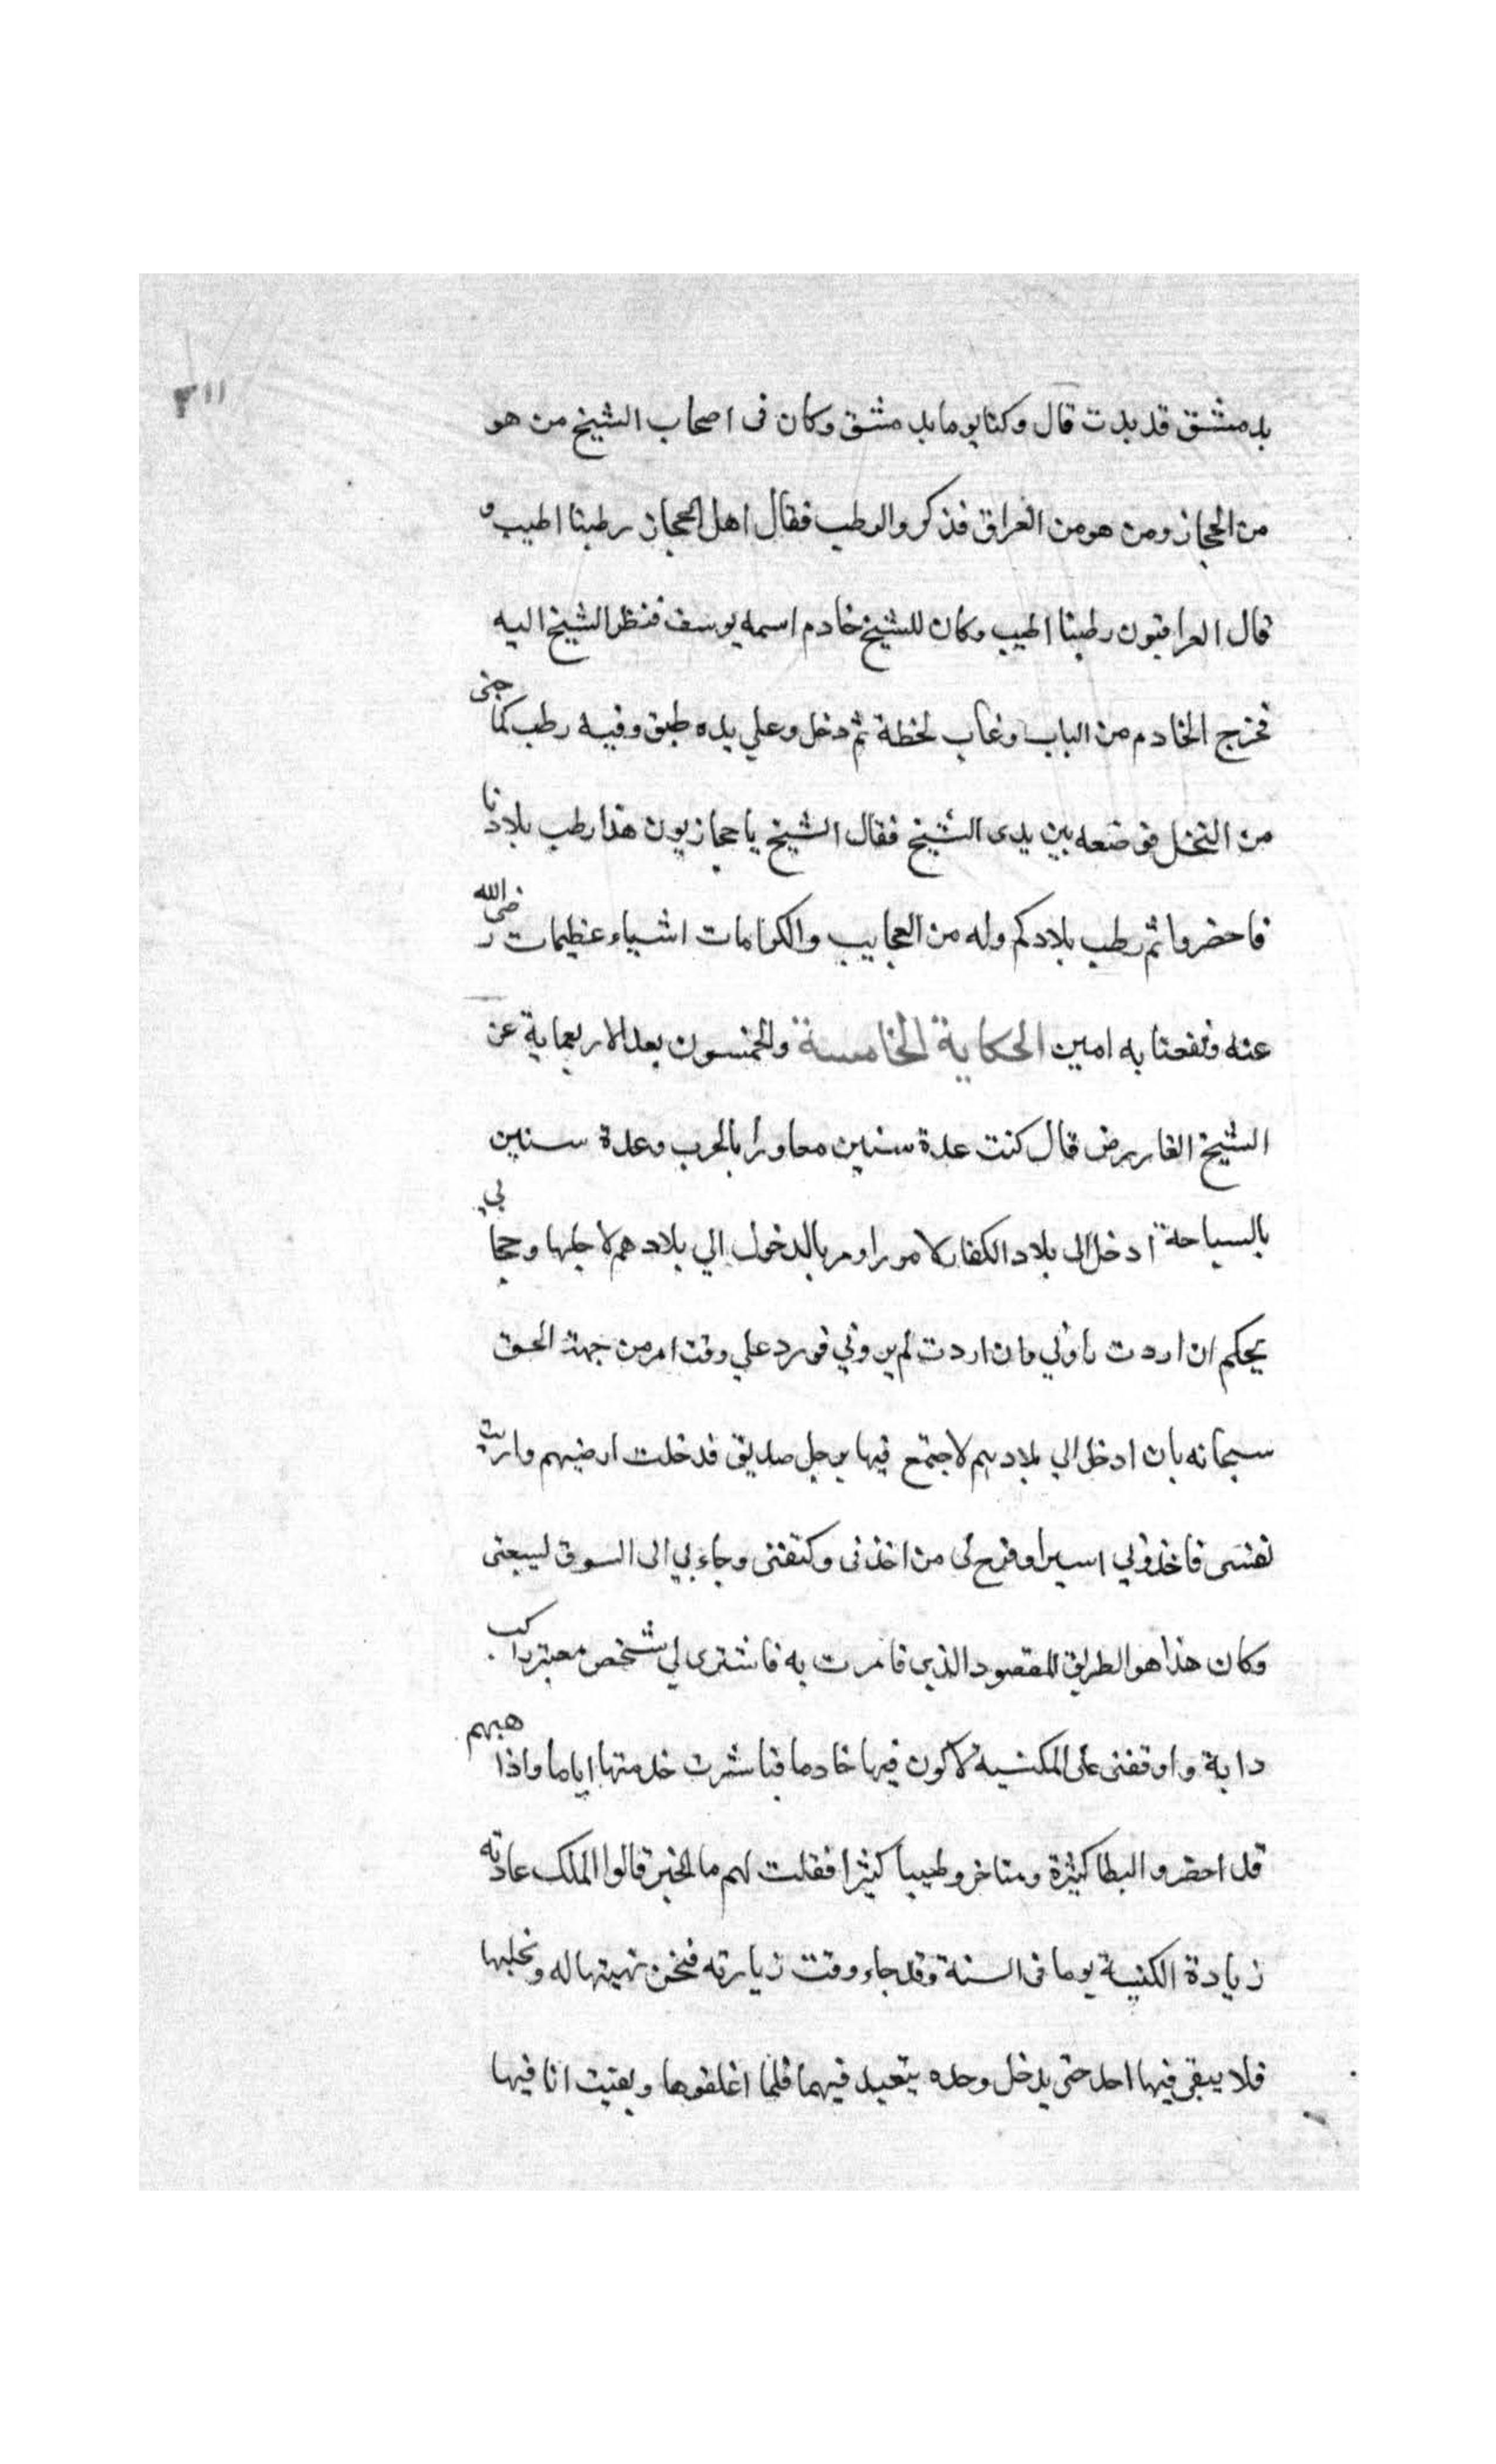 ٣١١
بدمشق قد بدت قال وكنا يوما بدمشق وكان فى اصحاب الشيخ من هو
من الحجاز ومن هو من العراق فذكروا الرطب فقال اهل الحجاز رطبنا اطيب و
قال العراقيون رطبنا اطيب وكان للشيخ خادم اسمه يوسف فنظر الشيخ اليه
فخرج الخادم من الباب وغاب لحظة ثم دخل وعلي يده طبق وفيه رطب كما جنى
من النخل فوضعه بين يدى الشيخ فقال الشيخ يا حجازيون هذا رطب بلادنا
فاحضروا ثم رطب بلادكم وله من العجايب والكرامات اشياء عظيمات رضى الله
عنه ونفعنا به امين الحكاية الخامسة والخمسون بعد الاربعماية عن
الشيخ قال كنت عدة سنين مجاورا بالحرب وعدة سنين
بالسياحة ادخل الى بلاد الكفار لامور اومر بالدخول الي بلادهم لاجلها وحجابي
بحكم ان اردت راوني وان اردت لم يروني فورد علي وقت امر من جهة الحق
سبحانه بان ادخل الي بلادهم لاجتمع فيها برجل صديق فدخلت ارضهم واريت
نفسى فاخذوني اسيرا وفرح بى من اخذنى وكتفنى وجاء بي الى السوق ليبيعنى
وكان هذا هو الطريق المقصود الذي فامرت به فاشترى لي شخص معتبر راكب
دابة واوقفنى على الكنسية لاكون فيها خادما فباشرت خدمتها اياما واذا هبهم
قد احضروا البطا كثيرة ومتاخر وطيبا كثيرا فقلت لهم ما الخبر قالوا الملك عادته
زيادة الكنيسة يوما فى السنة وقد جاء وقت زيارته فنحن نهيئها له ونخليها
فلا يبقى فيها احد حتى يدخل وحده يتعبد فيهما فلما اغلقوها وبقيت انا فيها